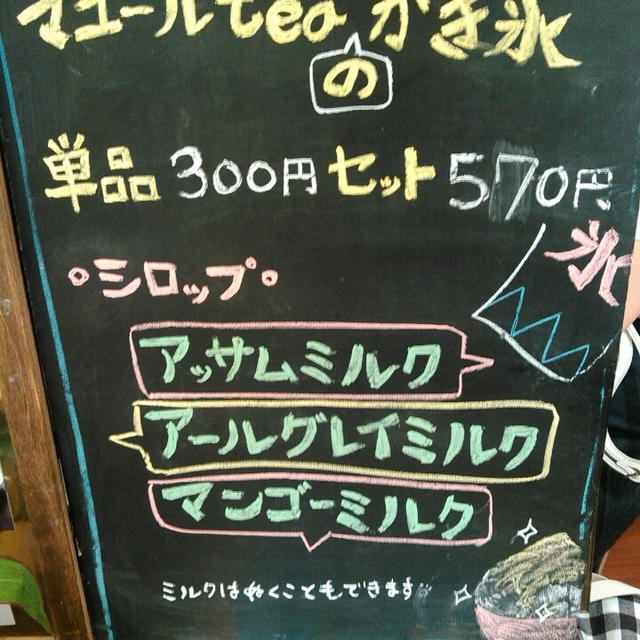 マユールtea かき氷
の
単品 300円 セット 570円
氷
シロップ
アッサムミルク
アールグレイミルク
マンゴーミルク
ミルクはぬくこともできます